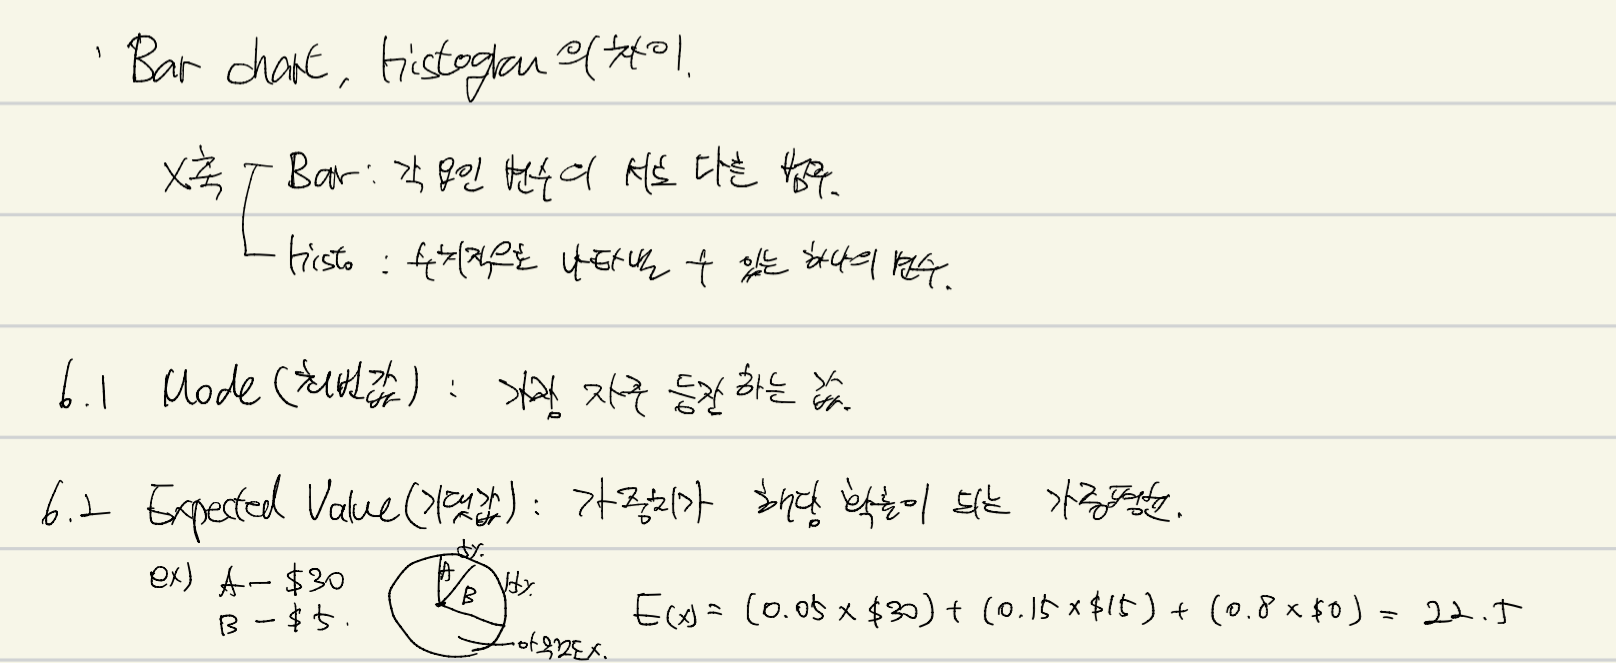 · Bar chart, histogram의 차이.
X축 Bar : 각 모인 변수이 서로 다른 범주.
histo : 수치적으로 나타낼 수 있는 하나의 변수.
6.1 Mode (최빈값) : 가장 자주 등장하는 값.
6.2 Expected Value (기댓값) : 가중치가 해당 확률이 되는 가중평균.
ex) A - $30
B - $5.
5%.
A
B
15%.
아무것도 X.
E(x) = (0.05 x $30) + (0.15 x $15) + (0.8 x $0) = 22.5